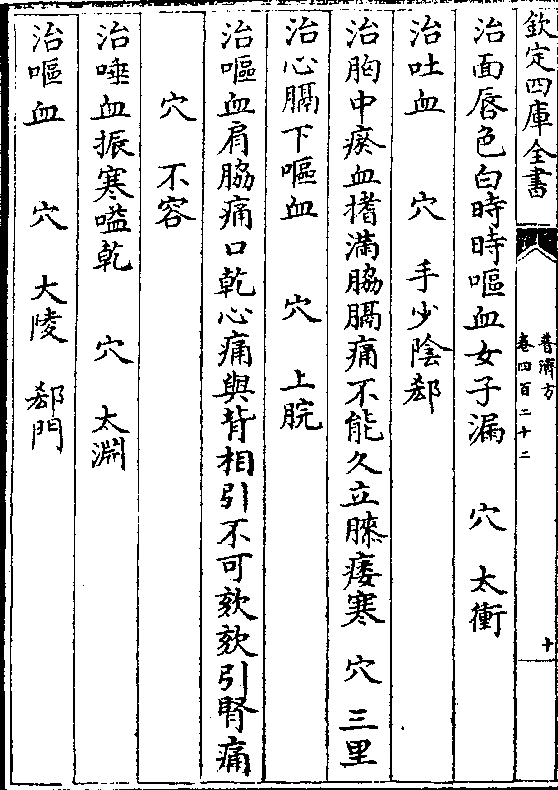 欽定四庫全書
普濟方
卷四百二十二
十
治面唇色白時時嘔血女子漏　穴　太衝
治吐血　穴　手少陰郄
治胸中瘀血㨷滿脇膈痛不能久立膝痿寒　穴　三里
治心膈下嘔血　穴　上脘
治嘔血肩脇痛口乾心痛與背相引不可欬欬引腎痛
穴　不容
治唾血振寒嗌乾　穴　太淵
治嘔血　穴　大陵　郄門